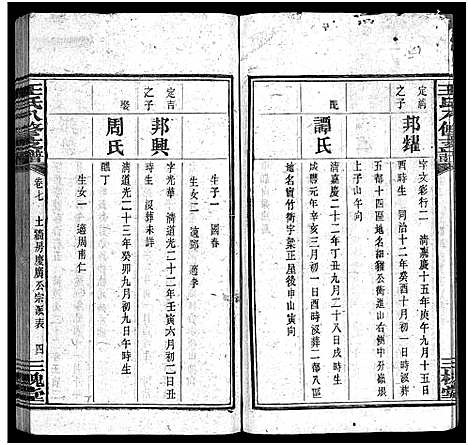 定湖
之子
邦耀
字文彩行二 清嘉慶十五年庚午九月十五日
酉時生 同治十二年癸酉十月初十日
上子山午向
配
譚氏
清嘉慶二十二年丁丑九月二十八日戌時生
咸豐元年辛亥三月初一日酉時歿葬二都八區
地名竇竹衝字梁正屋後申山寅向
生子一 國春
生女一 適李
定吉
之子
邦興
字光華 清道光二十二年壬寅六月初二日丑
時生 歿葬未詳
娶
周氏
清道光二十三年癸卯九月初九日午時生
生女一 適周南仁
王氏八修支譜
卷七
慶廣公宗派表
四
三槐堂